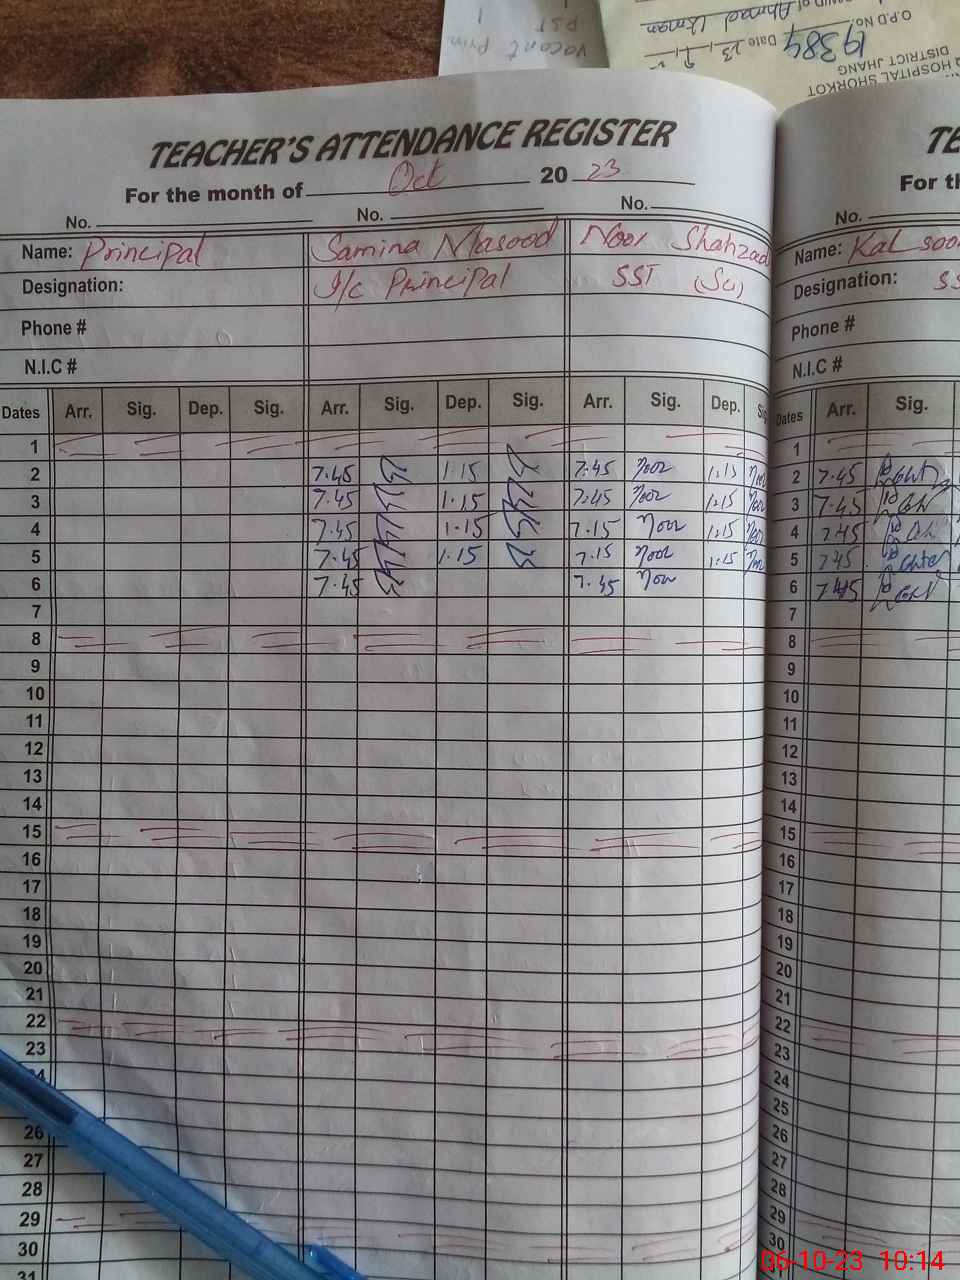 vacant Prin
PST 1
1
of Ahmad Usman
O.P.D No. 19384 Date 23
DISTRICT JHANG
HOSPITAL SHORKOT
TEACHER'S ATTENDANCE REGISTER
For the month of Oct 20 23
No. No. No.
Name: Principal Samina Masood Noor Shahzad
Designation: I/c Principal SST (Sci)
Phone #
N.I.C #
Dates Arr. Sig. Dep. Sig. Arr. Sig. Dep. Sig. Arr. Sig. Dep. Sig
1
2 7.45 1.15 7.45 Noor 1.15 Noor
3 7.45 1.15 7.45 Noor 1.15 Noor
4 7.45 1.15 7.15 Noor 1.15 Noor
5 7.45 1.15 7.15 Noor 1.15 Noor
6 7.45 7.45 Noor
7
8
9
10
11
12
13
14
15
16
17
18
19
20
21
22
23
24
26
27
28
29
30
31
TE
For th
No.
Name: Kal soo
Designation: SS
Phone #
N.I.C #
Dates Arr. Sig.
1
2 7.45
3 7.45
4 7.45
5 7.45
6 7.45
7
8
9
10
11
12
13
14
15
16
17
18
19
20
21
22
23
24
25
26
27
28
29
30
06-10-23 10:14